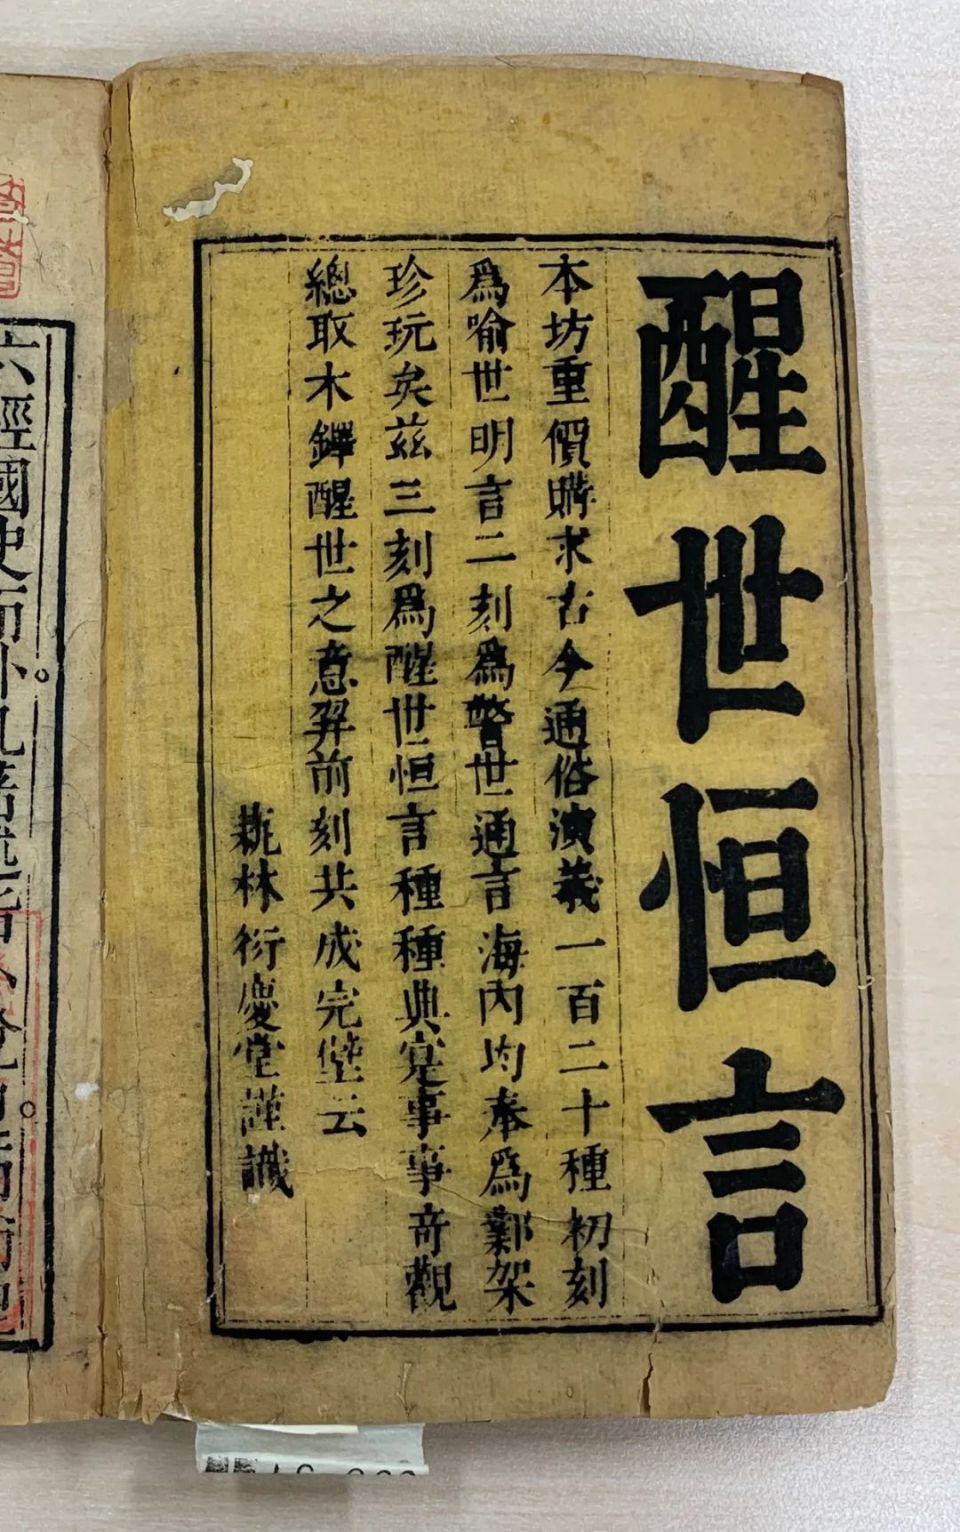 醒世恒言
本坊重價購求古今通俗演義一百二十種初刻
爲喻世明言二刻爲警世通言海內均奉爲鄴架
珍玩矣茲三刻爲醒世恒言種種典寔事事奇觀
總取木鐸醒世之意羿前刻共成完壁云
蓺林衍慶堂謹識
六經國史而外凡著述皆小說